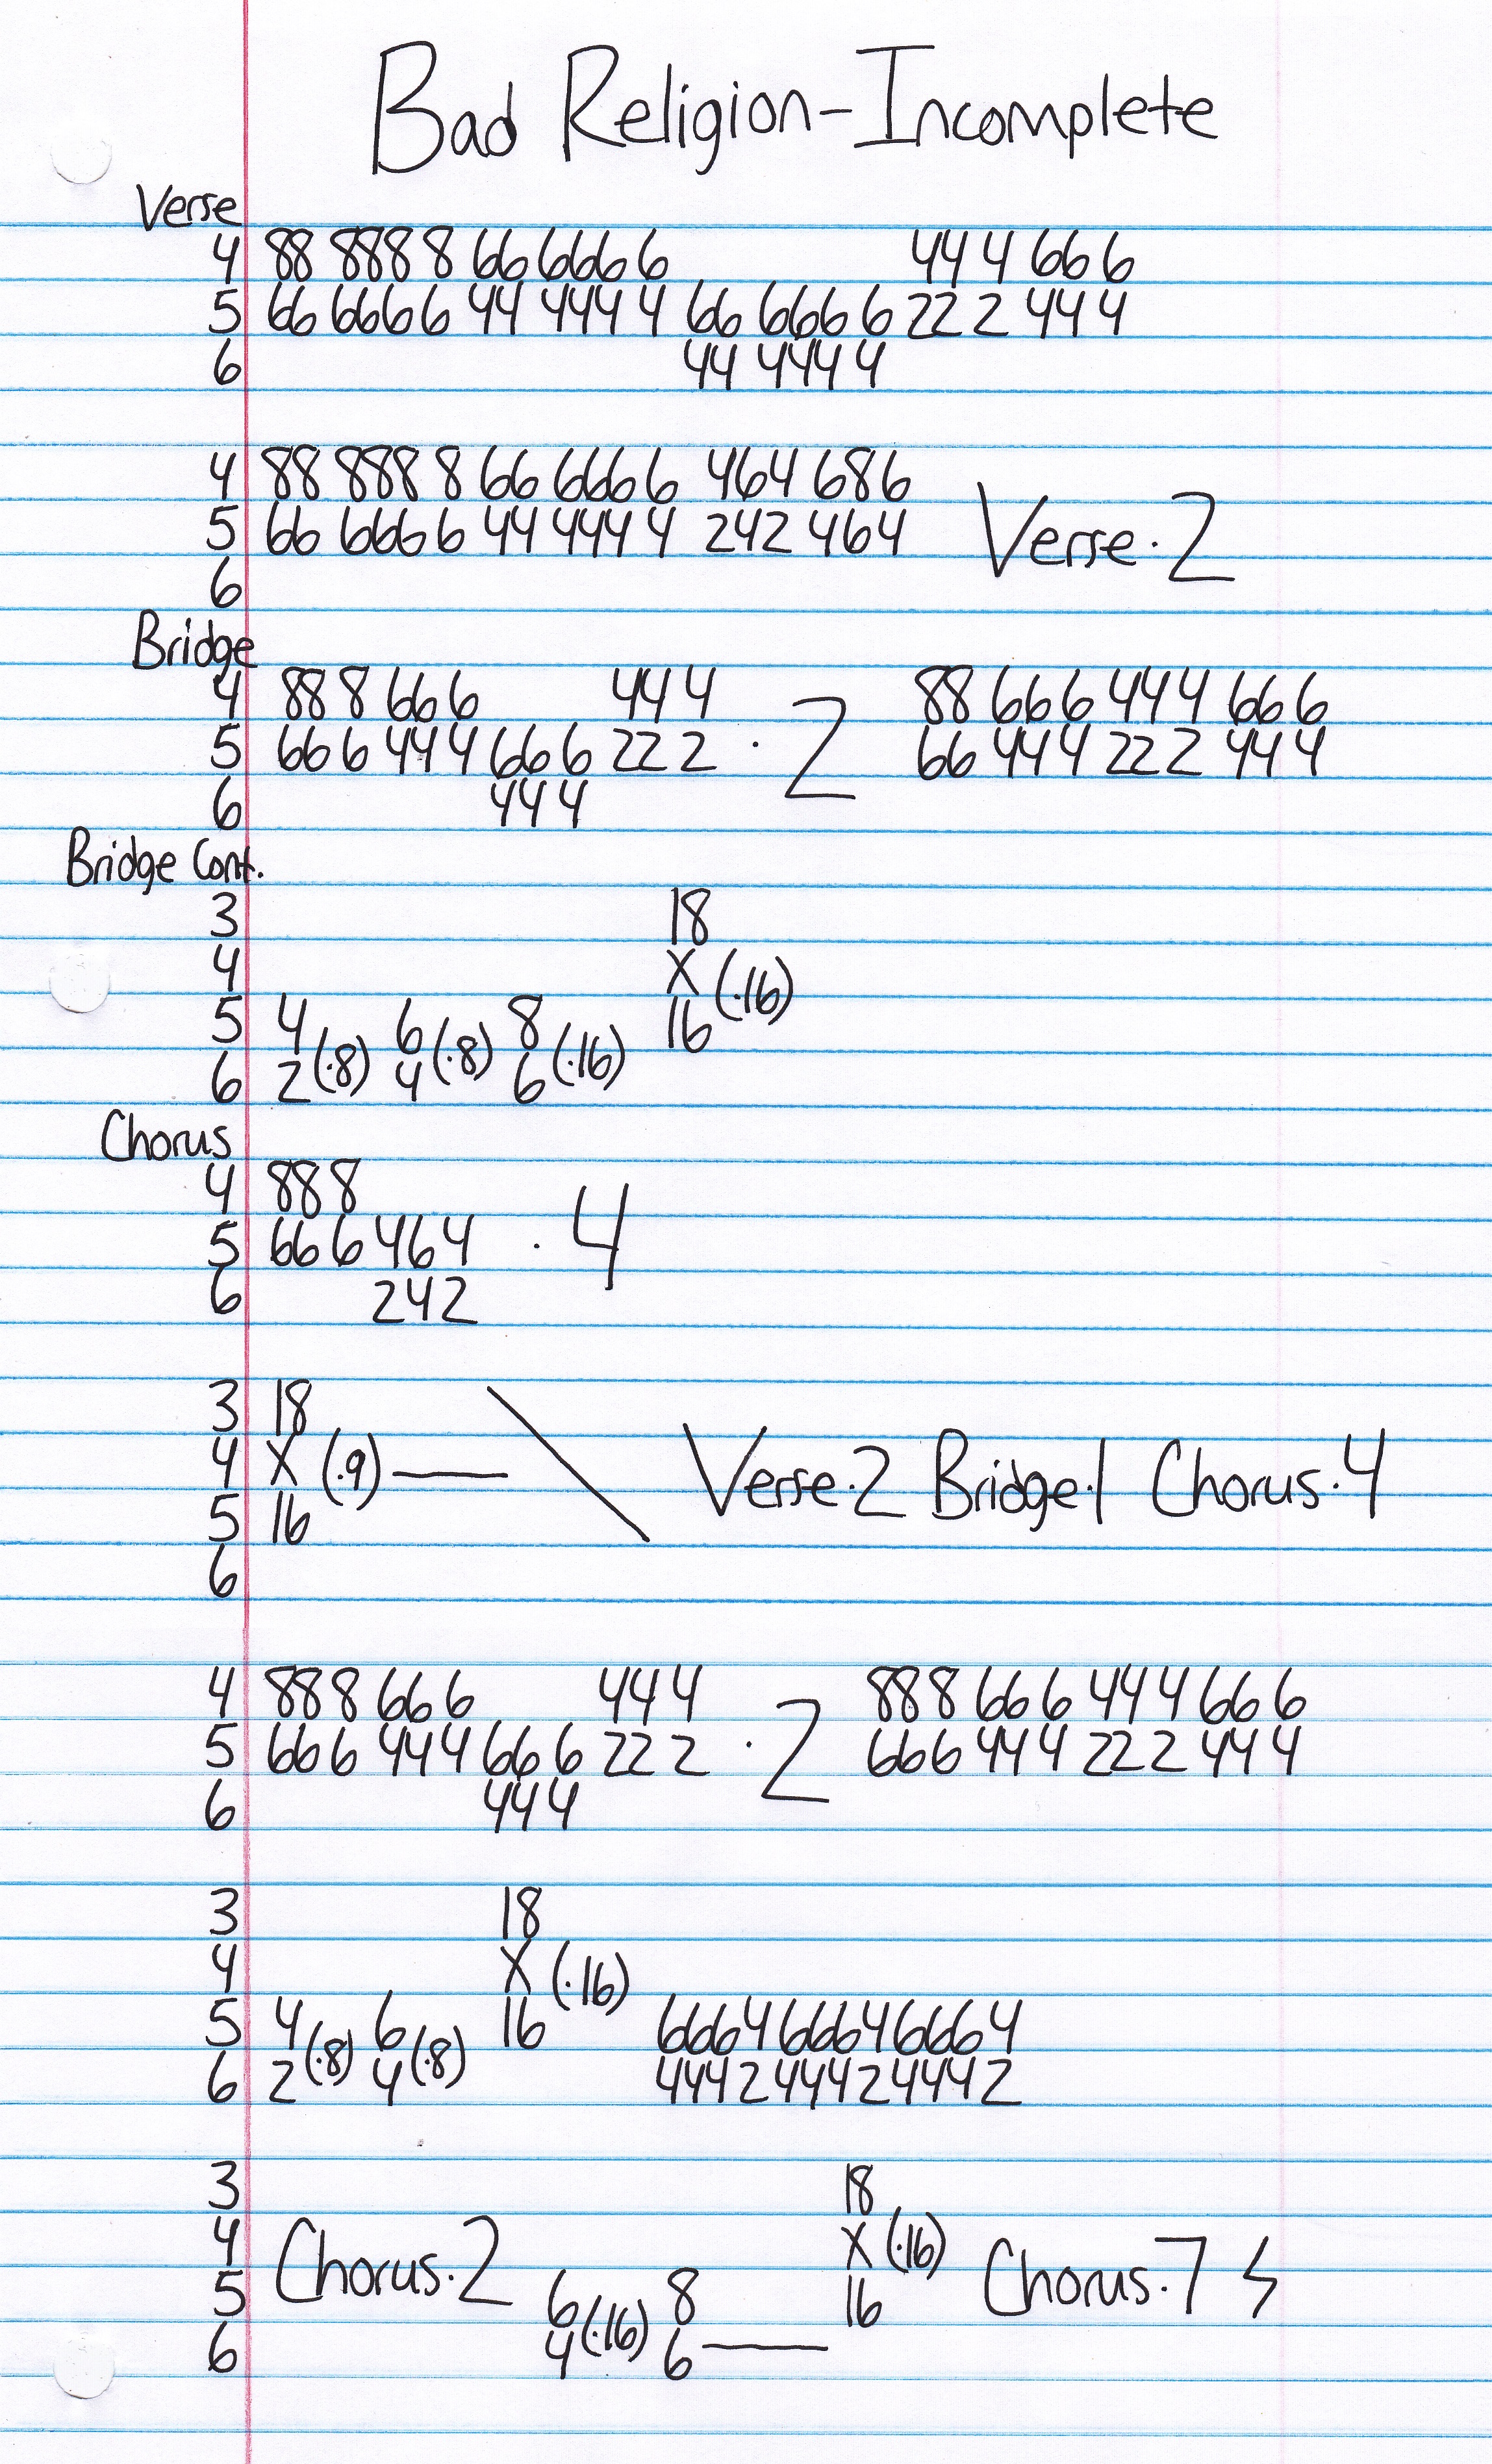 Bad Religion-Incomplete
Verse
4 88 888 8 66 666 6 44 4 66 6
5 66 666 6 44 444 4 66 666 6 22 2 44 4
6 44 444 4
4 88 888 8 66 666 6 464 686
5 66 666 6 44 444 4 242 464 Verse·2
6
Bridge
4 88 8 66 6 44 4 88 66 6 44 4 66 6
5 66 6 44 4 66 6 22 2 ·2 66 44 4 22 2 44 4
6 44 4
Bridge Cont.
3 18
4 X (·16)
5 4 6 8 16
6 2 (·8) 4 (·8) 6 (·16)
Chorus
4 888
5 666 464 ·4
6 242
3 18
4 X (·9) — \ Verse·2 Bridge·1 Chorus·4
5 16
6
4 888 666 444 888 666 444 666
5 666 444 666 222 ·2 666 444 222 444
6 444
3 18
4 X (·16)
5 4 6 16 666466646664
6 2 (·8) 4 (·8) 444244424442
3 18
4 Chorus·2 X (·16) Chorus·7
5 6 8 16
6 4 (·16) 6 —